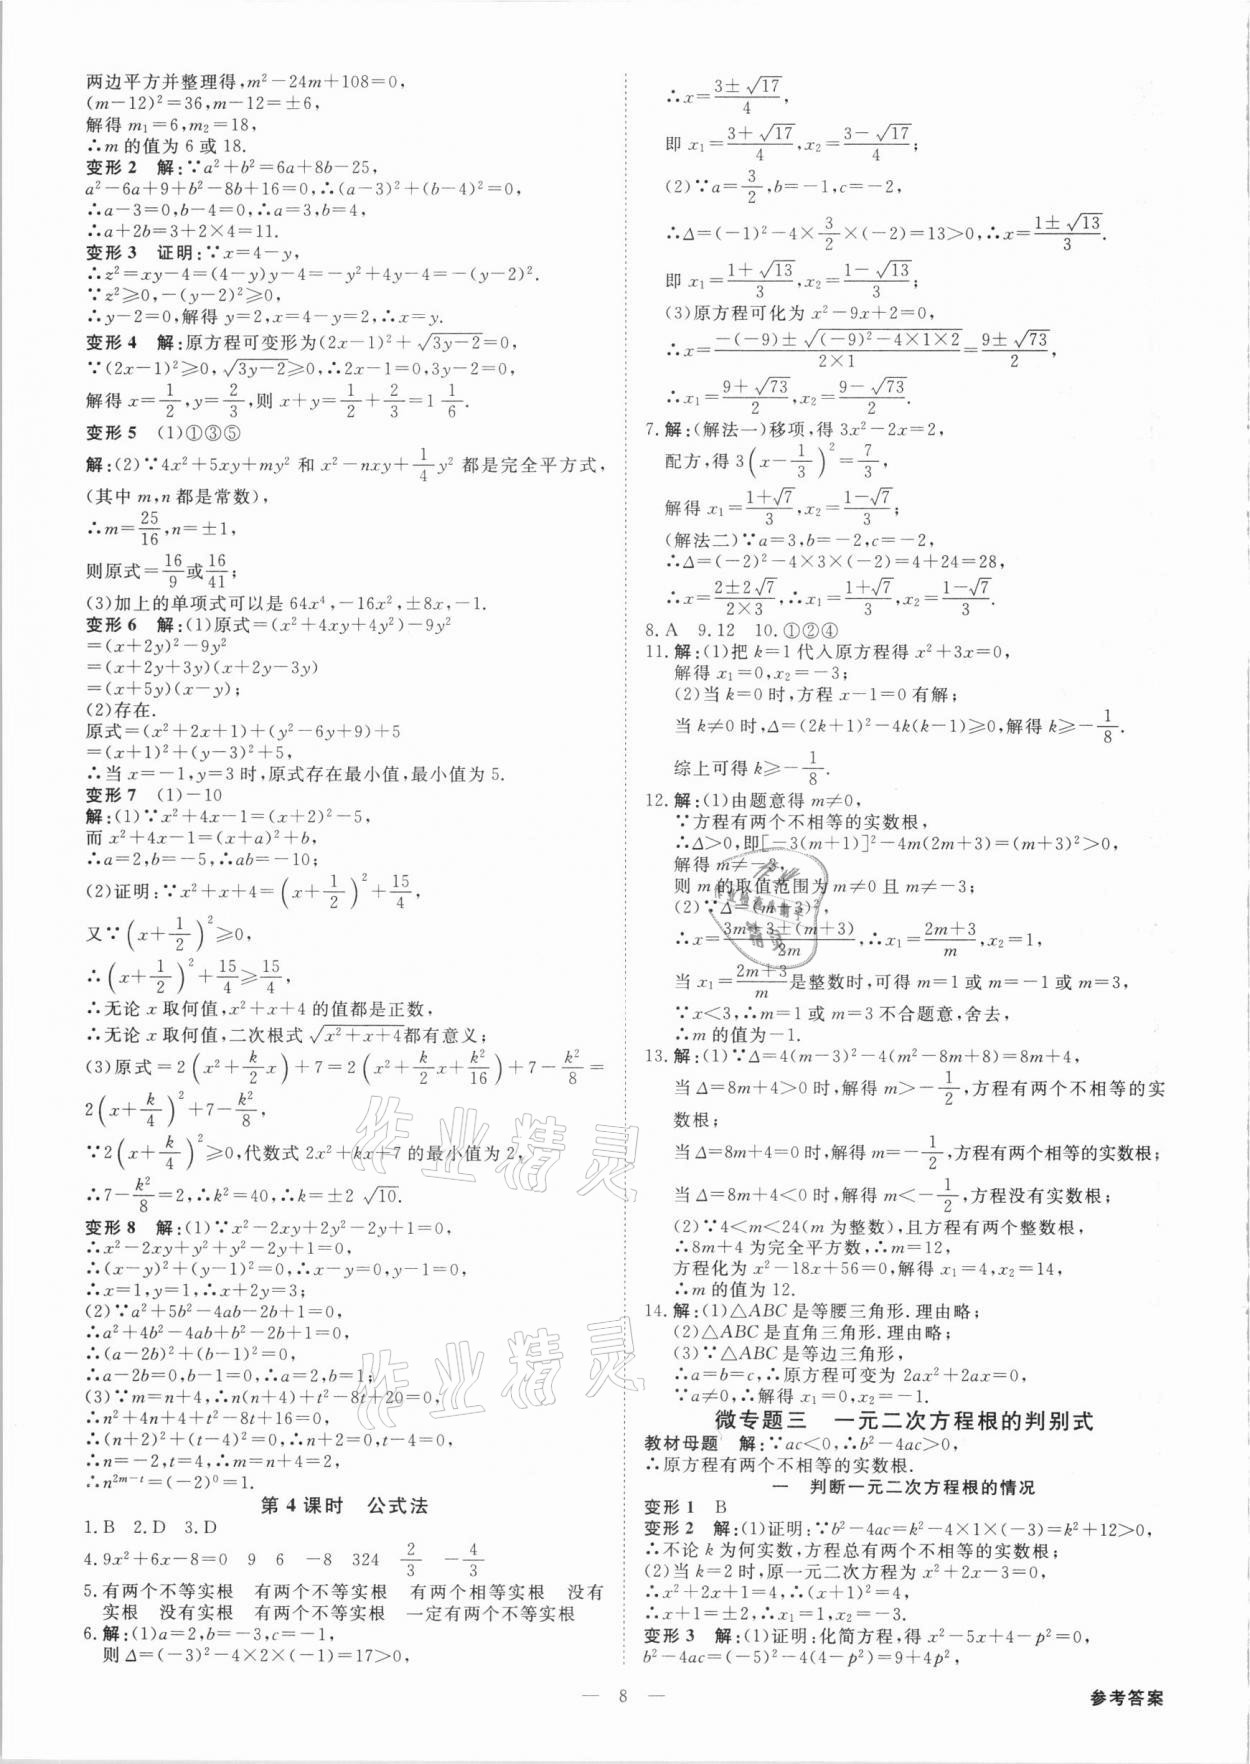 两边平方并整理得,m²-24m+108=0,
(m-12)²=36,m-12=±6,
解得 m₁=6,m₂=18,
∴m 的值为 6 或 18.
变形 2 解:∵a²+b²=6a+8b-25,
a²-6a+9+b²-8b+16=0,∴(a-3)²+(b-4)²=0,
∴a-3=0,b-4=0,∴a=3,b=4,
∴a+2b=3+2×4=11.
变形 3 证明:∵x=4-y,
∴z²=xy-4=(4-y)y-4=-y²+4y-4=-(y-2)².
∵z²≥0,-(y-2)²≥0,
∴y-2=0,解得 y=2,x=4-y=2,∴x=y.
变形 4 解:原方程可变形为(2x-1)²+√(3y-2)=0,
∵(2x-1)²≥0,√(3y-2)≥0,∴2x-1=0,3y-2=0,
解得 x=1/2,y=2/3,则 x+y=1/2+2/3=1 1/6.
变形 5 (1)①③⑤
解:(2)∵4x²+5xy+my² 和 x²-nxy+1/4 y² 都是完全平方式,
(其中 m,n都是常数),
∴m=25/16,n=±1,
则原式=16/9或16/41;
(3)加上的单项式可以是 64x⁴,-16x²,±8x,-1.
变形 6 解:(1)原式=(x²+4xy+4y²)-9y²
=(x+2y)²-9y²
=(x+2y+3y)(x+2y-3y)
=(x+5y)(x-y);
(2)存在.
原式=(x²+2x+1)+(y²-6y+9)+5
=(x+1)²+(y-3)²+5,
∴当 x=-1,y=3 时,原式存在最小值,最小值为 5.
变形 7 (1)-10
解:(1)∵x²+4x-1=(x+2)²-5,
而 x²+4x-1=(x+a)²+b,
∴a=2,b=-5,∴ab=-10;
(2)证明:∵x²+x+4=(x+1/2)²+15/4,
又∵(x+1/2)²≥0,
∴(x+1/2)²+15/4≥15/4,
∴无论 x 取何值,x²+x+4 的值都是正数,
∴无论 x 取何值,二次根式√(x²+x+4)都有意义;
(3)原式=2(x²+k/2 x)+7=2(x²+k/2 x+k²/16)+7-k²/8=
2(x+k/4)²+7-k²/8,
∵2(x+k/4)²≥0,代数式 2x²+kx+7 的最小值为 2,
∴7-k²/8=2,∴k²=40,∴k=±2√10.
变形 8 解:(1)∵x²-2xy+2y²-2y+1=0,
∴x²-2xy+y²+y²-2y+1=0,
∴(x-y)²+(y-1)²=0,∴x-y=0,y-1=0,
∴x=1,y=1,∴x+2y=3;
(2)∵a²+5b²-4ab-2b+1=0,
∴a²+4b²-4ab+b²-2b+1=0,
∴(a-2b)²+(b-1)²=0,
∴a-2b=0,b-1=0,∴a=2,b=1;
(3)∵m=n+4,∴n(n+4)+t²-8t+20=0,
∴n²+4n+4+t²-8t+16=0,
∴(n+2)²+(t-4)²=0,
∴n=-2,t=4,∴m=n+4=2,
∴n²ᵐ⁻ᵗ=(-2)⁰=1.
第 4 课时 公式法
1.B 2.D 3.D
4.9x²+6x-8=0 9 6 -8 324 2/3 -4/3
5.有两个不等实根 有两个不等实根 有两个相等实根 没有
实根 没有实根 有两个不等实根 一定有两个不等实根
6.解:(1)a=2,b=-3,c=-1,
则 Δ=(-3)²-4×2×(-1)=17>0,
∴x=(3±√17)/4,
即 x₁=(3+√17)/4,x₂=(3-√17)/4;
(2)∵a=3/2,b=-1,c=-2,
∴Δ=(-1)²-4×3/2×(-2)=13>0,∴x=(1±√13)/3.
即 x₁=(1+√13)/3,x₂=(1-√13)/3;
(3)原方程可化为 x²-9x+2=0,
∴x=(-(-9)±√((-9)²-4×1×2))/(2×1)=(9±√73)/2,
∴x₁=(9+√73)/2,x₂=(9-√73)/2.
7.解:(解法一)移项,得 3x²-2x=2,
配方,得 3(x-1/3)²=7/3,
解得 x₁=(1+√7)/3,x₂=(1-√7)/3;
(解法二)∵a=3,b=-2,c=-2,
∴Δ=(-2)²-4×3×(-2)=4+24=28,
∴x=(2±2√7)/(2×3),∴x₁=(1+√7)/3,x₂=(1-√7)/3.
8.A 9.12 10.①②④
11.解:(1)把 k=1 代入原方程得 x²+3x=0,
解得 x₁=0,x₂=-3;
(2)当 k=0 时,方程 x-1=0 有解;
当 k≠0 时,Δ=(2k+1)²-4k(k-1)≥0,解得 k≥-1/8.
综上可得 k≥-1/8.
12.解:(1)由题意得 m≠0,
∵方程有两个不相等的实数根,
∴Δ>0,即[-3(m+1)]²-4m(2m+3)=(m+3)²>0,
解得 m≠-3,
则 m 的取值范围为 m≠0 且 m≠-3;
(2)∵Δ=(m+3)²,
∴x=(3m+3±(m+3))/2m,∴x₁=(2m+3)/m,x₂=1,
当 x₁=(2m+3)/m是整数时,可得 m=1 或 m=-1 或 m=3,
∵x<3,∴m=1 或 m=3 不合题意,舍去,
∴m 的值为-1.
13.解:(1)∵Δ=4(m-3)²-4(m²-8m+8)=8m+4,
当 Δ=8m+4>0 时,解得 m>-1/2,方程有两个不相等的实
数根;
当 Δ=8m+4=0 时,解得 m=-1/2,方程有两个相等的实数根;
当 Δ=8m+4<0 时,解得 m<-1/2,方程没有实数根;
(2)∵4<m<24(m 为整数),且方程有两个整数根,
∴8m+4 为完全平方数,∴m=12,
方程化为 x²-18x+56=0,解得 x₁=4,x₂=14,
∴m 的值为 12.
14.解:(1)△ABC 是等腰三角形.理由略;
(2)△ABC 是直角三角形.理由略;
(3)∵△ABC 是等边三角形,
∴a=b=c,∴原方程可变为 2ax²+2ax=0,
∵a≠0,∴解得 x₁=0,x₂=-1.
微专题三 一元二次方程根的判别式
教材母题 解:∵ac<0,∴b²-4ac>0,
∴原方程有两个不相等的实数根.
一 判断一元二次方程根的情况
变形 1 B
变形 2 解:(1)证明:∵b²-4ac=k²-4×1×(-3)=k²+12>0,
∴不论 k 为何实数,方程总有两个不相等的实数根;
(2)当 k=2 时,原一元二次方程为 x²+2x-3=0,
∴x²+2x+1=4,∴(x+1)²=4,
∴x+1=±2,∴x₁=1,x₂=-3.
变形 3 解:(1)证明:化简方程,得 x²-5x+4-p²=0,
b²-4ac=(-5)²-4(4-p²)=9+4p²,
— 8 —
参考答案
作业精灵
作业精灵